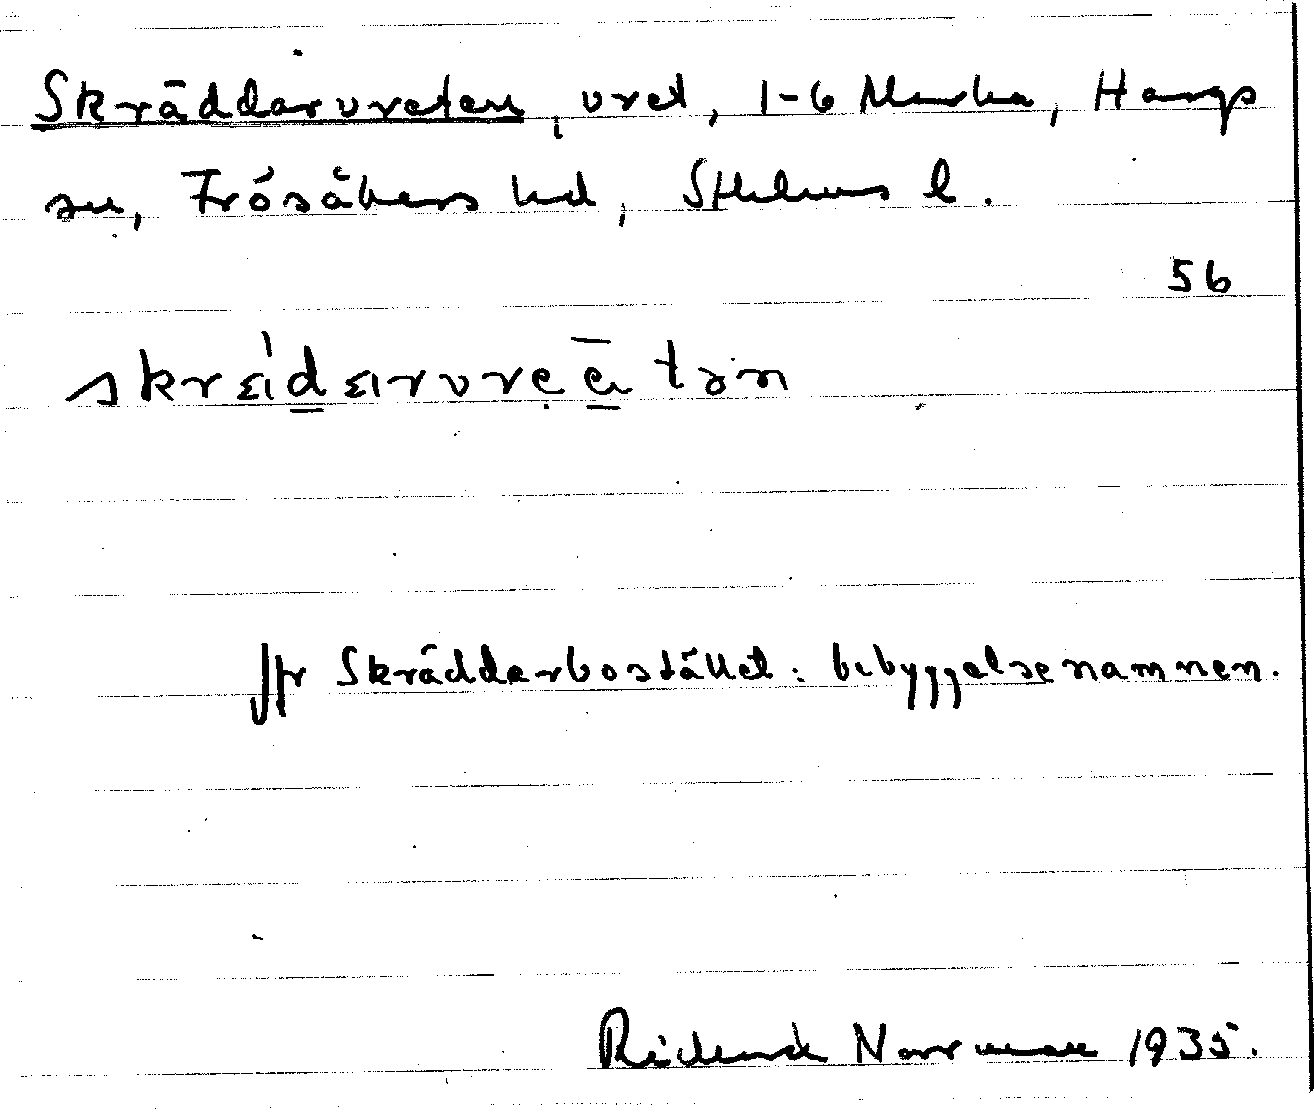 Skräddarvreten, vret, 1-6 Marka, Hargs
sn, Frösåkers hd, Sthlms l.
56
skräddarvretən
Jfr Skräddarbostället: bebyggelsenamnen.
Rickard Norrman 1935.